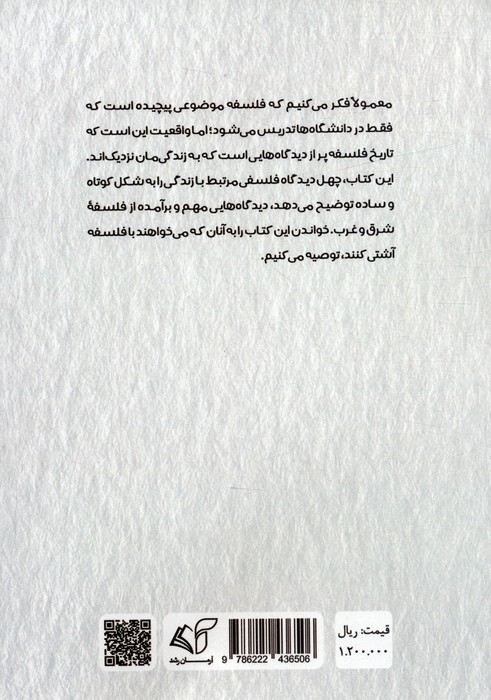 معمولاً فکر می‌کنیم که فلسفه موضوعی پیچیده است که
فقط در دانشگاه‌ها تدریس می‌شود؛ اما واقعیت این است که
تاریخ فلسفه پر از دیدگاه‌هایی است که به زندگی‌مان نزدیک‌اند.
این کتاب، چهل دیدگاه فلسفی مرتبط با زندگی را به شکل کوتاه
و ساده توضیح می‌دهد، دیدگاه‌هایی مهم و برآمده از فلسفهٔ
شرق و غرب. خواندن این کتاب را به آنان که می‌خواهند با فلسفه
آشتی کنند، توصیه می‌کنیم.
قیمت: ریال
۱.۲۰۰.۰۰۰
9 786222 436506
آرمان رشد